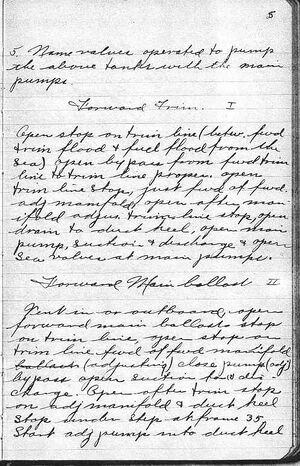 5
5. Name valves operated to pump
the above tanks with the main
pumps.
Forward Trim. I
Open stop on trim line (betw. fwd
trim flood & fuel flood from the
sea) open by pass from fwd trim
line to trim line proper. open
trim line stop, just fwd of fwd.
adj manifold, open after man-
ifold adjus. trim line stop, open
drain to duct keel, open main
pump, suction & discharge & open
sea valves at main pumps.
Forward Main ballast II
in or outboard, open
forward main ballast stop
on trim line, open stop on
trim line fwd of fwd manifold
ballast (adjusting) close pump (adj)
by pass open suction to & dis
charge. Open after trim stop
on adj manifold & duct keel
stop under step at frame 35
Start adj pump into duct keel